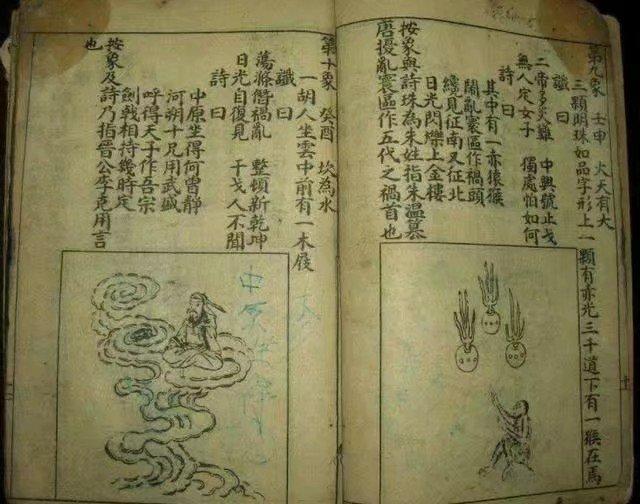 第九象 壬申 火天有大
三顆明珠如品字形上一顆有亦光三千道下有一猴在馬
讖曰
二帝多災難 中興號止戈
無人定女子 獨處怕如何
詩曰
其中有一亦猿猴
鬧亂寰區作禍頭
纔見征南又征北
日光閃爍上金樓
按象與詩珠為朱姓指朱溫墓
唐擾亂寰區作五代之禍首也
第十象 癸酉 坎為水
一胡人坐雲中前有一木屐
讖曰
蕩滌僭禍亂 整頓新乾坤
日光自復見 干戈人不聞
詩曰
中原坐得何曾靜
河朔十兄用武威
呼得天子作吾宗
劍戟相持幾時定
按象及詩乃指晉公李克用言
也
中原